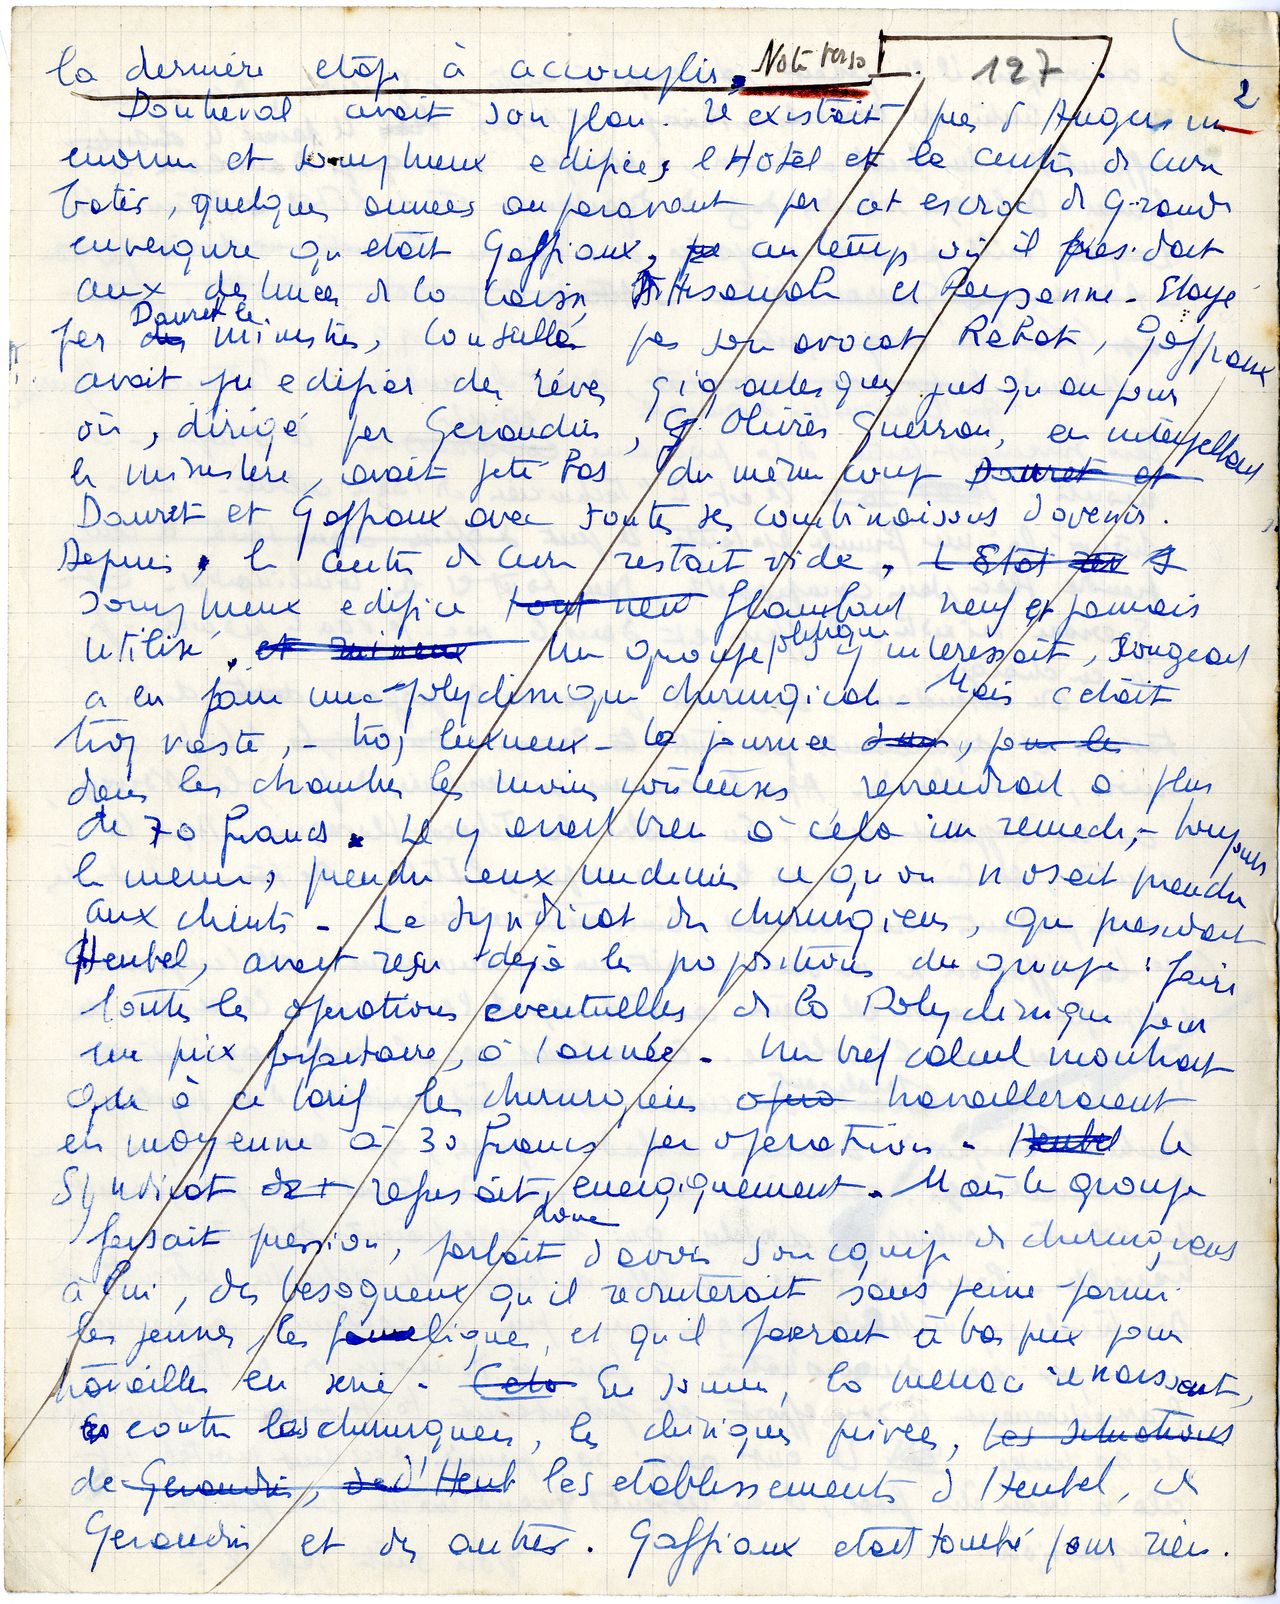 la dernière etape à accomplir. Note verso I. 127
2
Doutreval avait son plan. Il existait près d'Angers un
enorme et somptueux edifice, l'Hôtel et le centre de cure
batis, quelques annees auparavant par cet escroc de grande
envergure qu etait Gaffiaux, au temps où il presidait
aux destinees de la Caisse Artisanale et Paysanne - Etayé
par des Dauret le ministre, Conseillé par son avocat Rebat, Gaffiaux
avait pu edifier des rêves gigantesques jusqu au jour
où, dirigé par Geraudin, Olivier Guerran, en interpellant
le ministere, avait jeté bas du même coup Dauret et
Dauret et Gaffiaux avec toutes ses combinaisons d avenir.
Depuis, le centre de cure restait vide, L Etat
somptueux edifice tout neuf flambant neuf et jamais
utilisé, et ruineux Un groupe politique s y interessait, songeant
a en faire une polyclinique chirurgicale - Mais c etait
trop vaste, - trop luxueux - la journee d une, pour les
dans les chambres les moins coûteuses reviendrait a plus
de 70 francs. Il y avait bien à cela un remede, - toujours
le meme, prendre aux medecins ce qu on n osait prendre
aux clients - Le Syndicat des chirurgiens, que presidait
Heubel, avait reçu déjà les propositions du groupe : faire
toutes les operations eventuelles de la Polyclinique pour
un prix forfaitaire, à l année - Un bref calcul montrait
qu à ce tarif les chirurgiens opera travailleraient
en moyenne à 30 francs par operation - Heubel le
Syndicat refusait energiquement. Mais le groupe
faisait pression, parlait donc d avoir son equipe de chirurgiens
à lui, des besogneux qu il recruterait sans peine parmi
les jeunes, les fameliques, et qu il paierait à bas prix pour
travailler en serie - Cela En somme, la menace renaissante,
contre les chirurgiens, les cliniques privees, Les situations
de Geraudin, de d'Heub les etablissements d Heubel, de
Geraudin et des autres. Gaffiaux etait tombé pour rien.